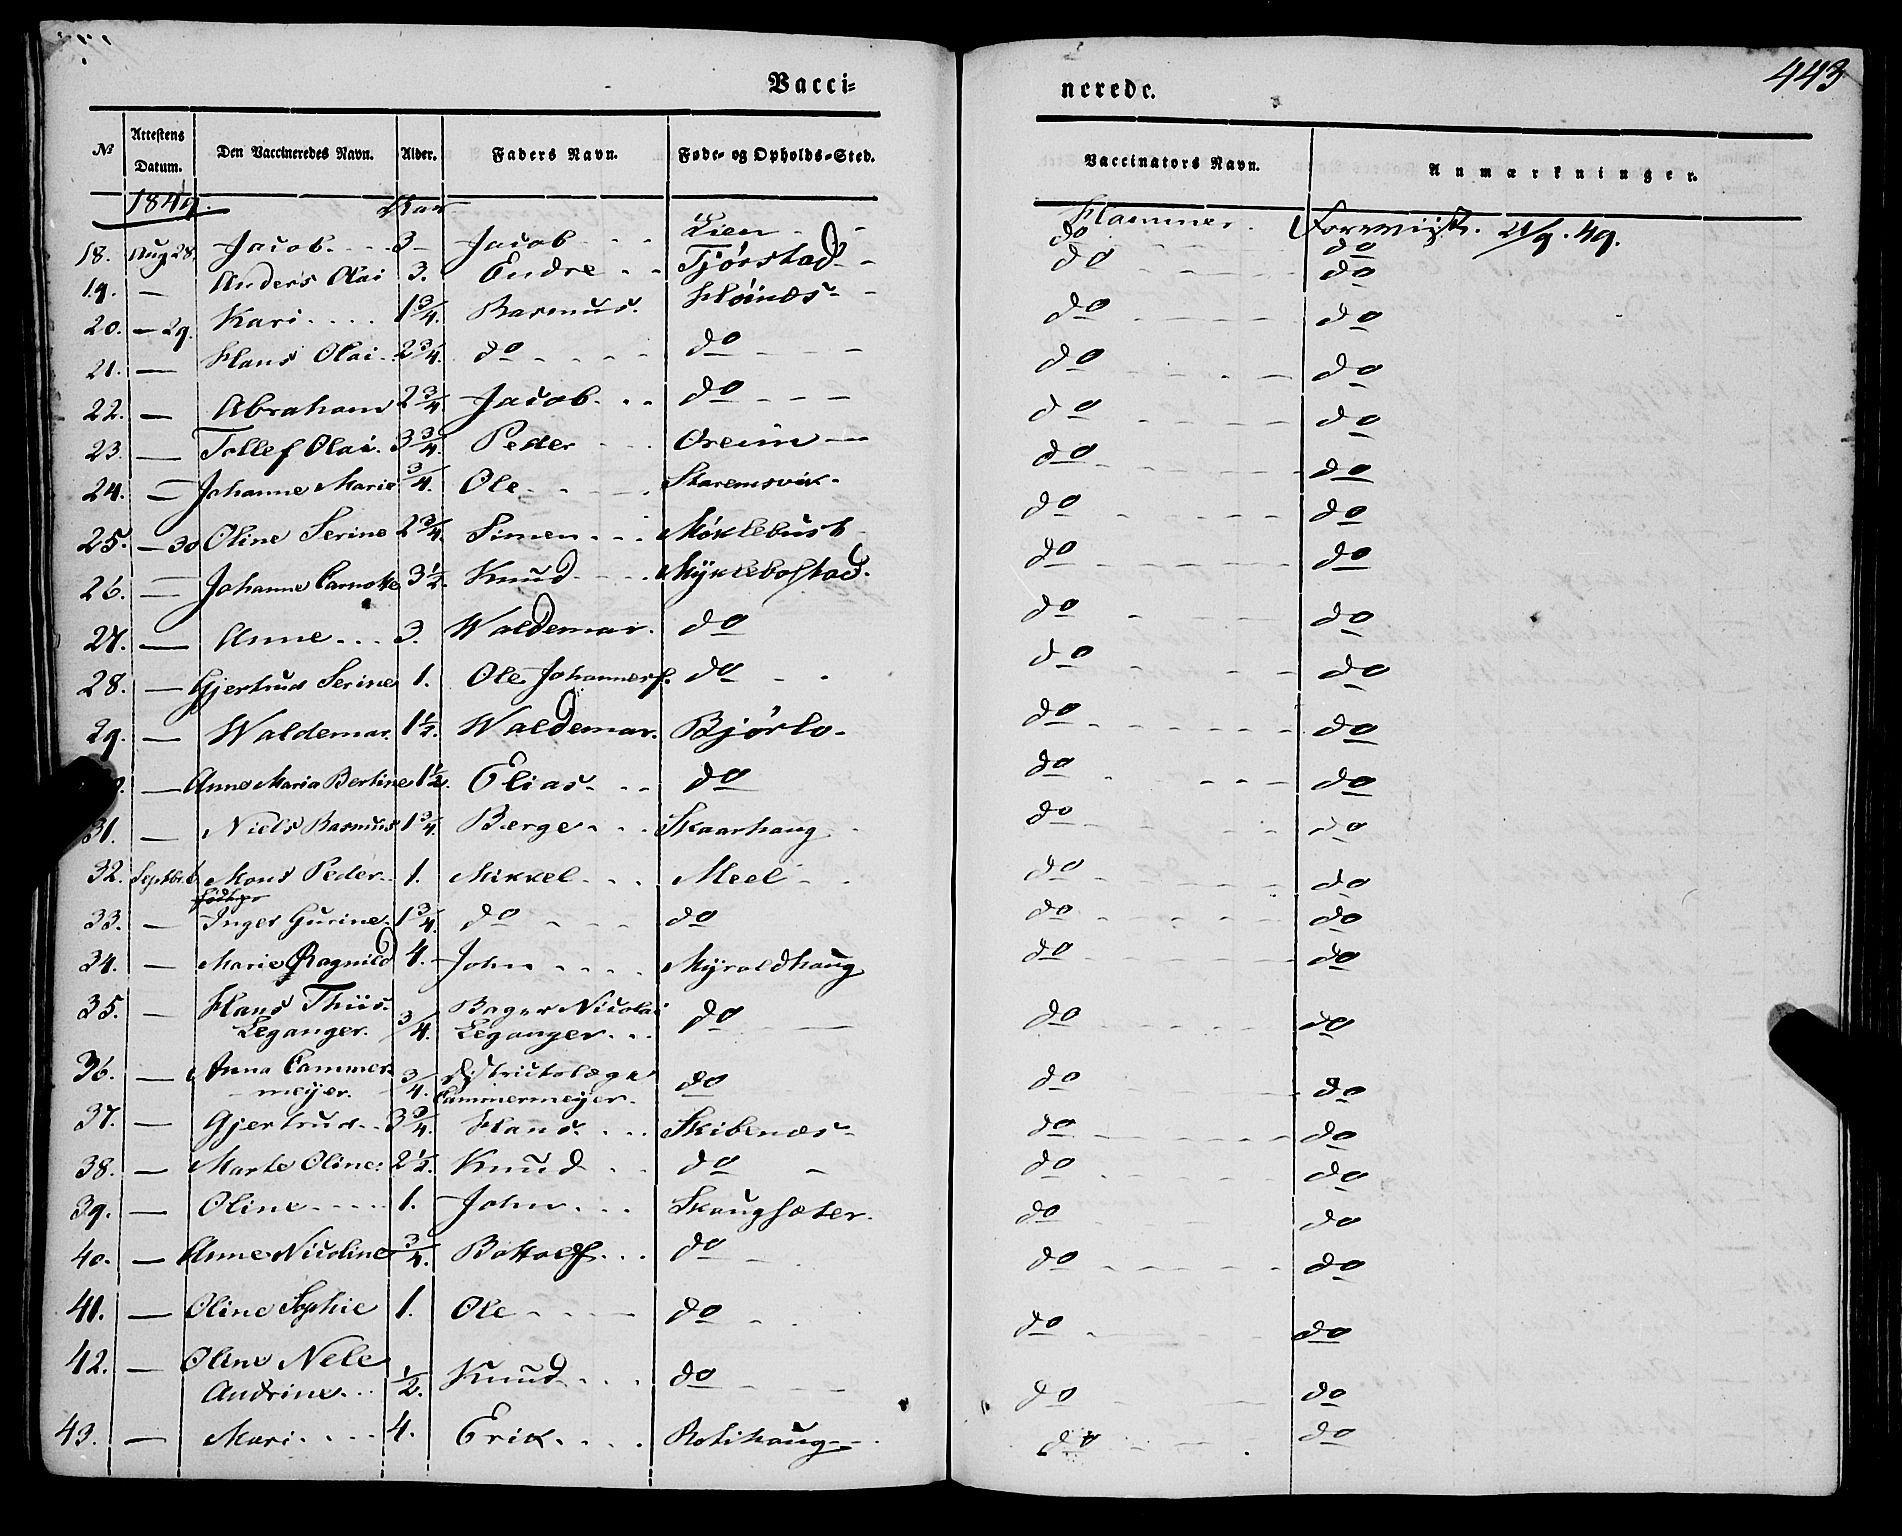 443
Vacci-
nerede.
№ Attestens Datum. Den Vaccineredes Navn. Alder. Faders Navn. Føde- og Opholds-Sted. Vaccinators Navn. Anmærkninger.
1849. Aar
18. Aug 28. Jacob. 3 Jacob Lien Hammer. Foreviist. 21/9. 49.
do do
19. — Anders Olai 3. Endre Tjörstad do do
20. — 29. Kari 1 3/4. Rasmus. Höinæs do do
21. — Hans Olai 2 3/4. do do do do
22. — Abraham 2 3/4. Jacob. do do do
23. — Tollef Olai. 3 3/4. Peder Oreim do do
24. — Johanne Marie 3/4. Ole Staremsvik do do
25. — 30 Oline Serine 2 3/4. Simen Möklebust do do
26. — Johanne 3 1/2. Knud Myklebostad. do do
27. — Anne 3. Waldemar. do do do
28. — Gjertrud Serine 1. Ole Johannesf. do do do
29. — Waldemar. 1 1/2. Waldemar. Bjørlo do do
— Anne Maria Bertine 1 1/2. Elias do do do
31. — Niels Rasmus 1 3/4. Berge Skaarhaug do do
32. Septbr. 6 Mons Peder 1. Mikkel Meel do do
33. — Inger Gurine. 1 3/4. do do do do
34. — Marie Ragnild 4. John Myroldhaug do do
35. — Hans Thiis Leganger. 3/4. Bager Nicolai Leganger do do do
36. — Anna Cammermeyer. 3/4. Districtslæge Cammermeijer. do do do
37. — Gjertrud 3 3/4. Hans. Skibenæs do do
38. — Marte Oline 2 1/2. Knud do do do
39. — Oline 1. John Skougsæter. do do
40. — Anne Nicoline 3/4. Bottolf do do do
41. — Oline Sophie 1. Ole do do do
42. — Oline Nele Andrine 1/2. Knud do do do
43. — Mari 4. Erik Rotihaug do do